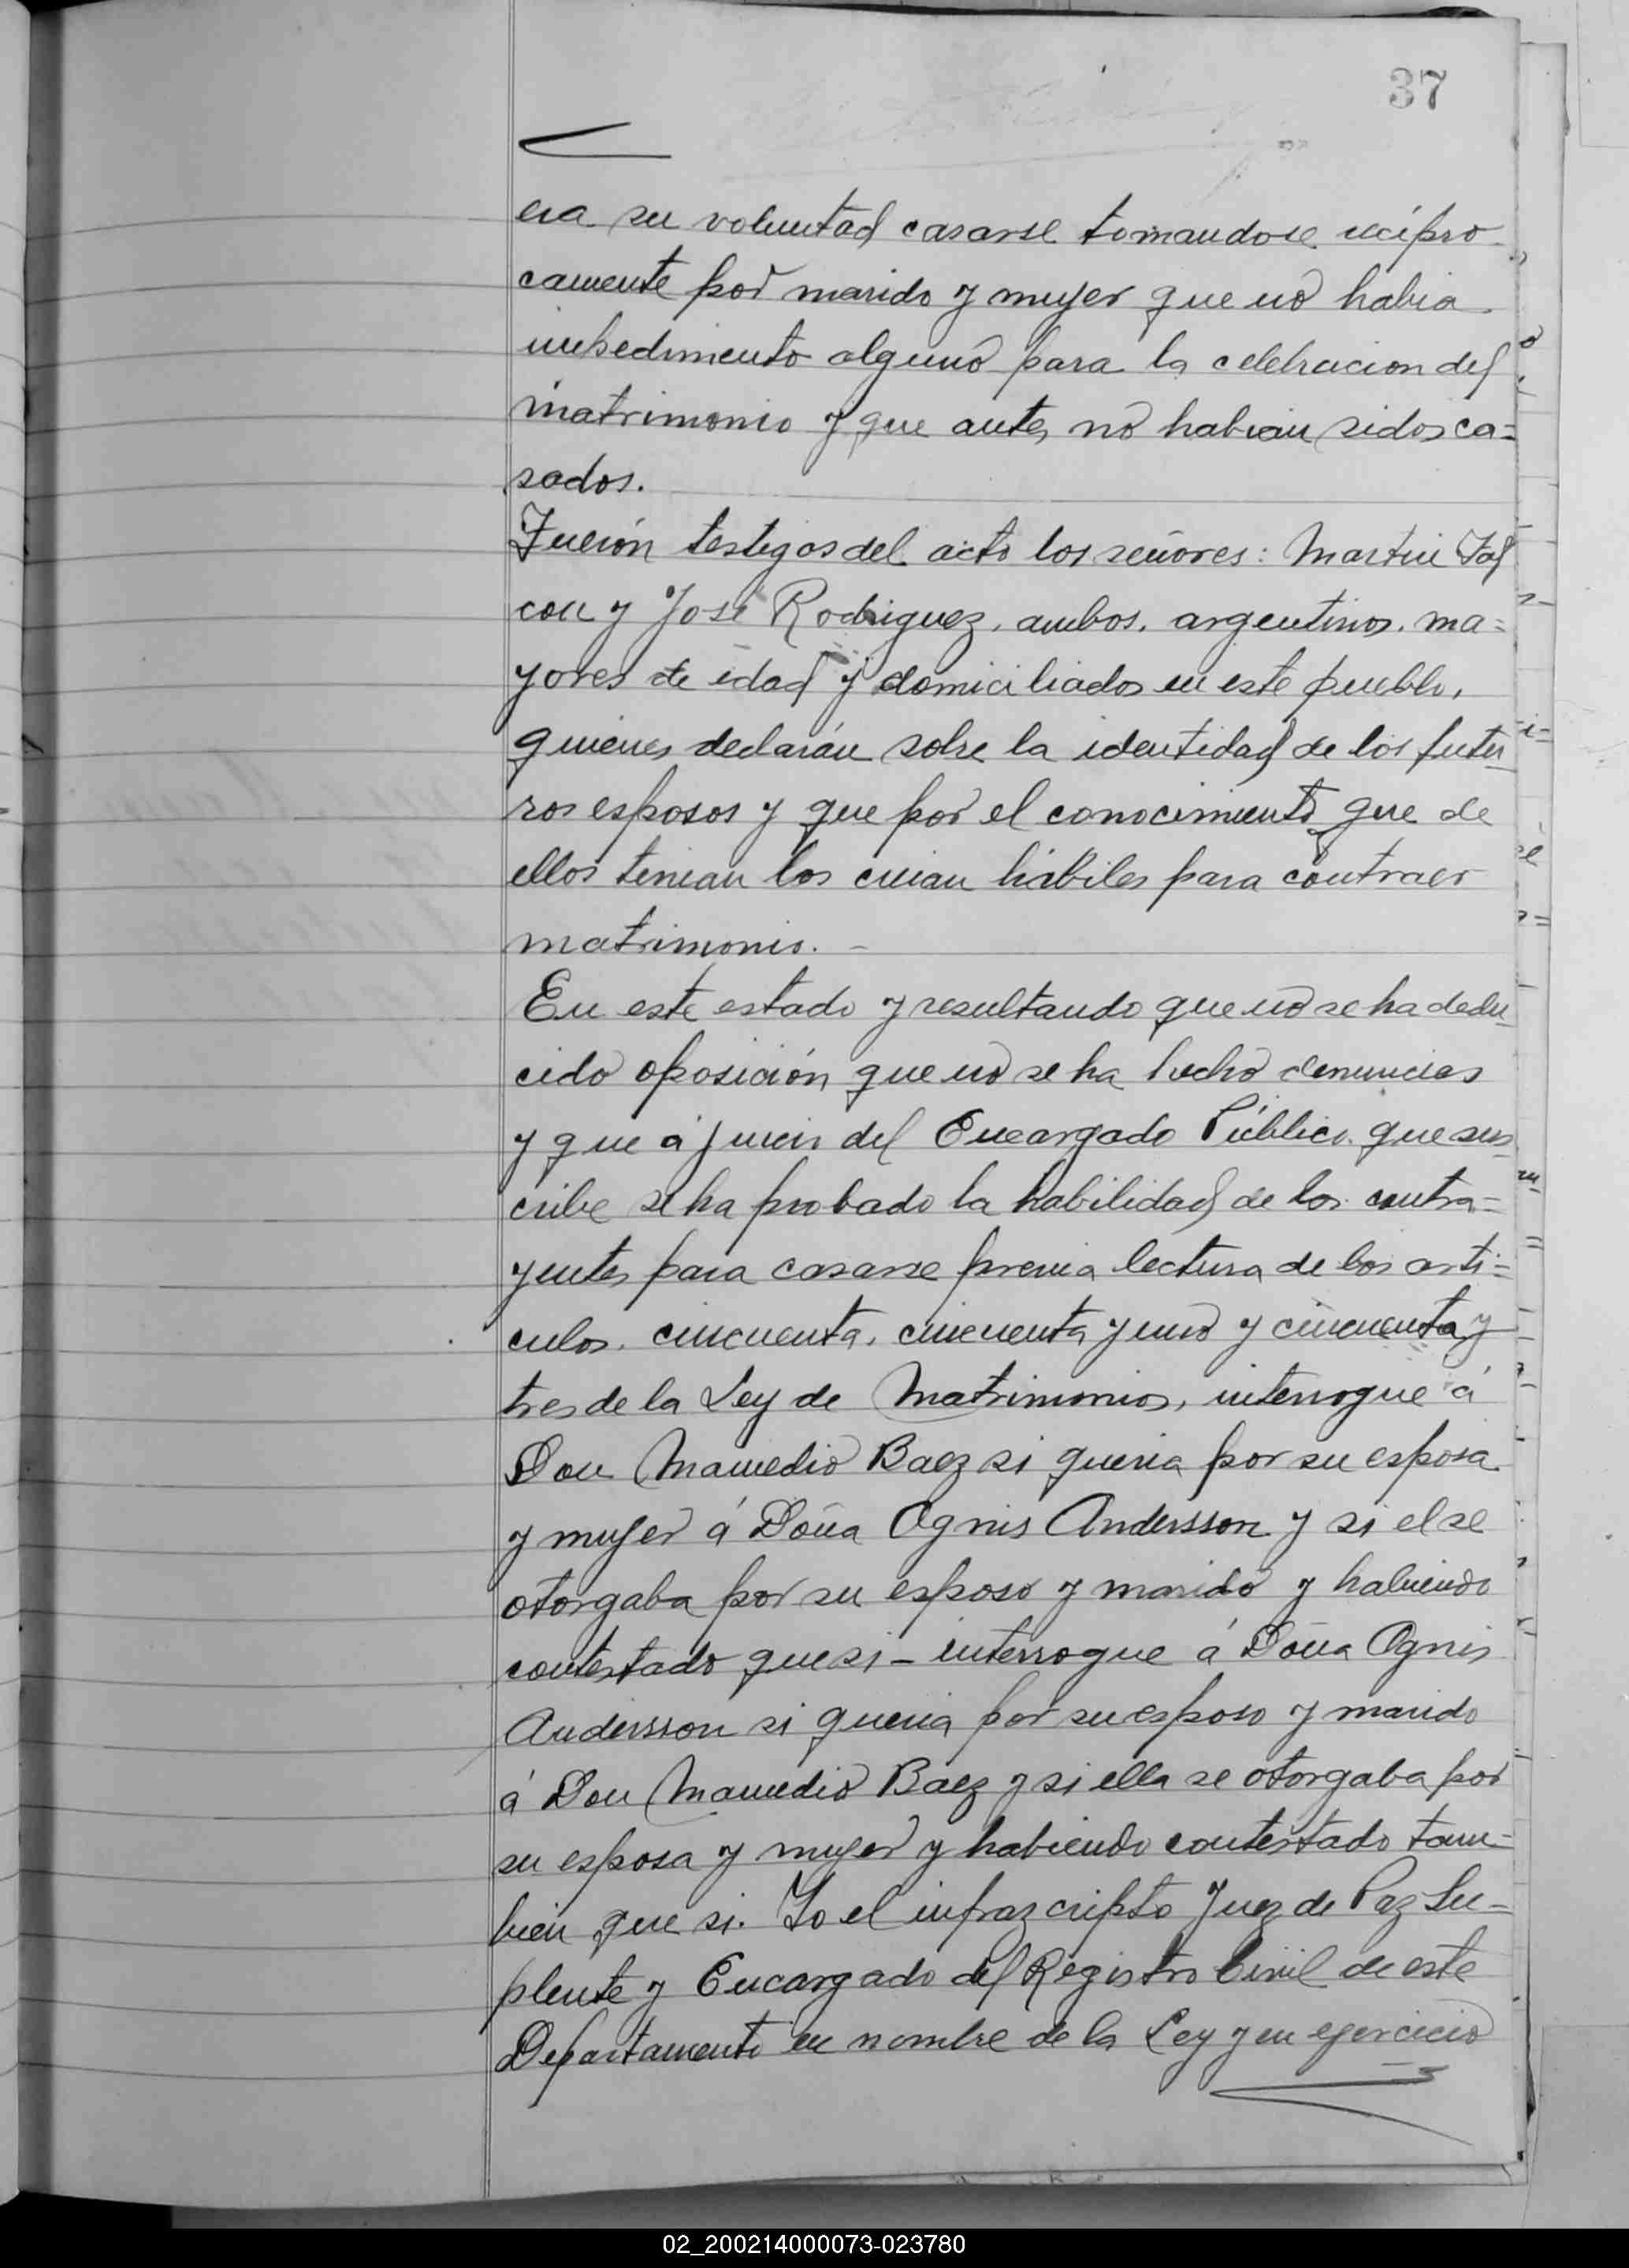 37
era su voluntad casarse tomandose recipro-
camente por marido y mujer que no habia
impedimento alguno para la celebracion del
matrimonio y que antes no habian sidos ca=
sados.
Fuerón testigos del acto los señores: Martin Fal
con y José Rodriguez, ambos, argentinos, ma=
yores de edad y domiciliados en este pueblo,
quienes declarán sobre la identidad de los futu
ros esposos y que por el conocimiento que de
ellos tenian los creian hábiles para contraer
matrimonio. -
En este estado y resultando que no se ha dedu
cido oposición que no se ha hecho denuncias
y que á juicio del Encargado Público que sus
cribe se ha probado la habilidad de los contra=
yentes para casarse previa lectura de los arti=
culos, cincuenta, cincuenta y uno y cincuenta y
tres de la Ley de Matrimonios, interrogue á
Don Mamedio Baez si queria por su esposa
y mujer á Doña Ognis Andersson y si el se
otorgaba por su esposo y marido y habiendo
contestado que si - interrogue á Doña Ognis
Andersson si queria por su esposo y marido
á Don Mamedio Baez y si ella se otorgaba por
su esposa y mujer y habiendo contestado tam=
bien que si. Yo el infrazcripto Juez de Paz Su=
plente y Encargado del Registro Civil de este
Departamento en nombre de la Ley y en ejercicio
02_200214000073-023780